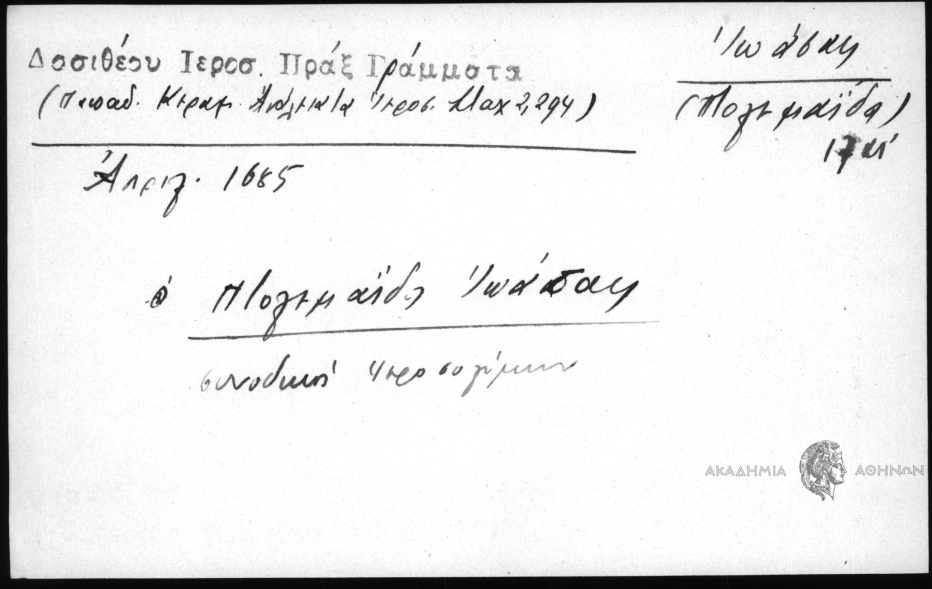 Δοσιθέου Ιεροσ. Πράξ Γράμματα
(Παπαδ. Κεραμ. Ἀνάλεκτα Ἱεροσ. Σταχ 2,294)
Ἰωάσαφ
(Πτολεμαΐδα)
17 αἰ
Ἀπριλ. 1685
ὁ Πτολεμαΐδος Ἰωάσαφ
συνοδικοῦ Ἱεροσολύμων
ΑΚΑΔΗΜΙΑ ΑΘΗΝΩΝ